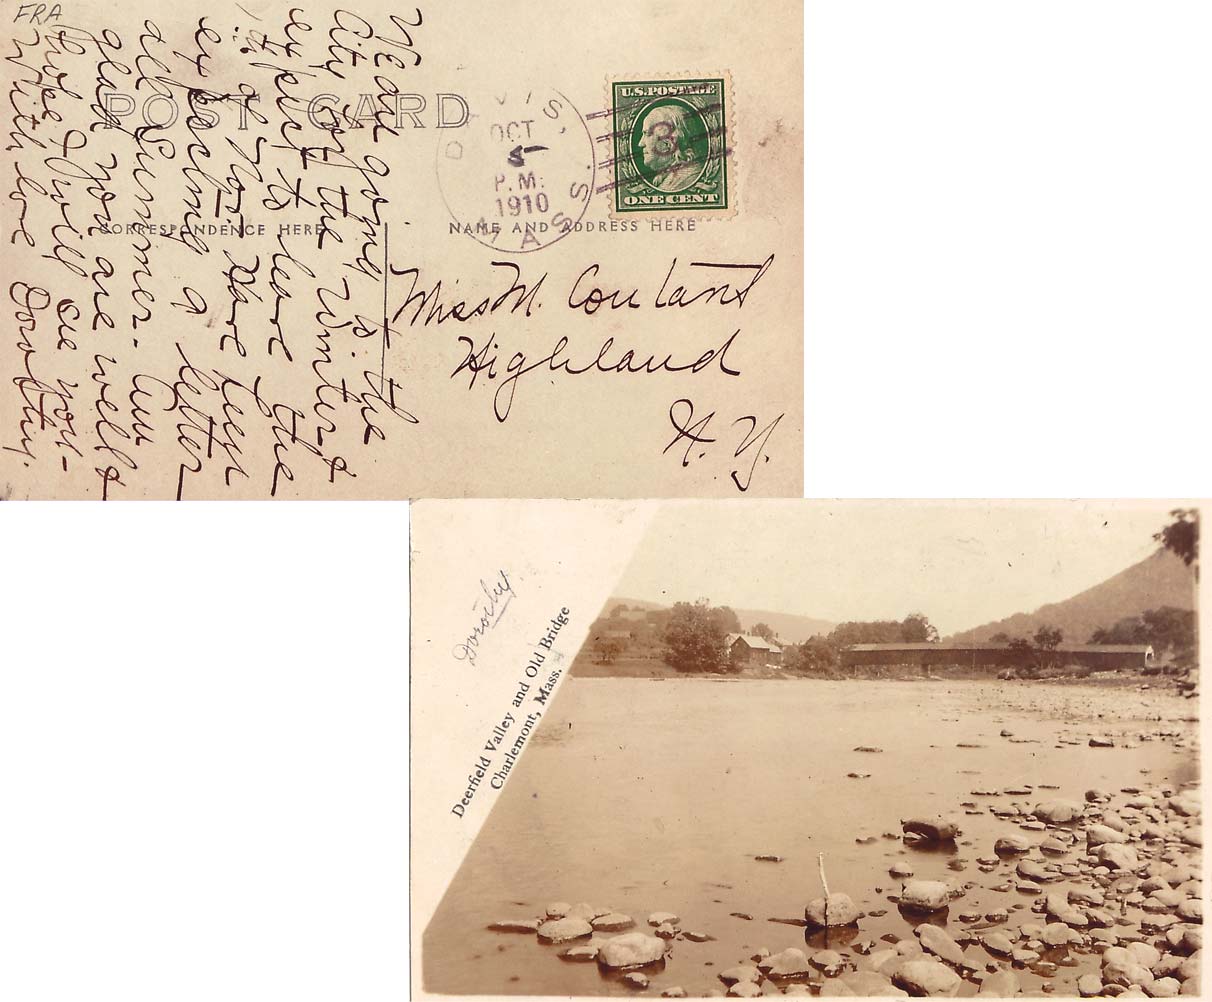 FRA
POST CARD
CORRESPONDENCE HERE
NAME AND ADDRESS HERE
We are going to the
City for the winter &
expect to leave the
of Nov. Have been
expecting a letter
all Summer. Am
glad you are well &
hope I will see you -
With love Dorothy.
DAVIS.
OCT
5
P.M.
1910
MASS.
U.S. POSTAGE
3
ONE CENT
Miss M. Coutant
Highland
N. Y.
Dorothy.
Deerfield Valley and Old Bridge
Charlemont, Mass.